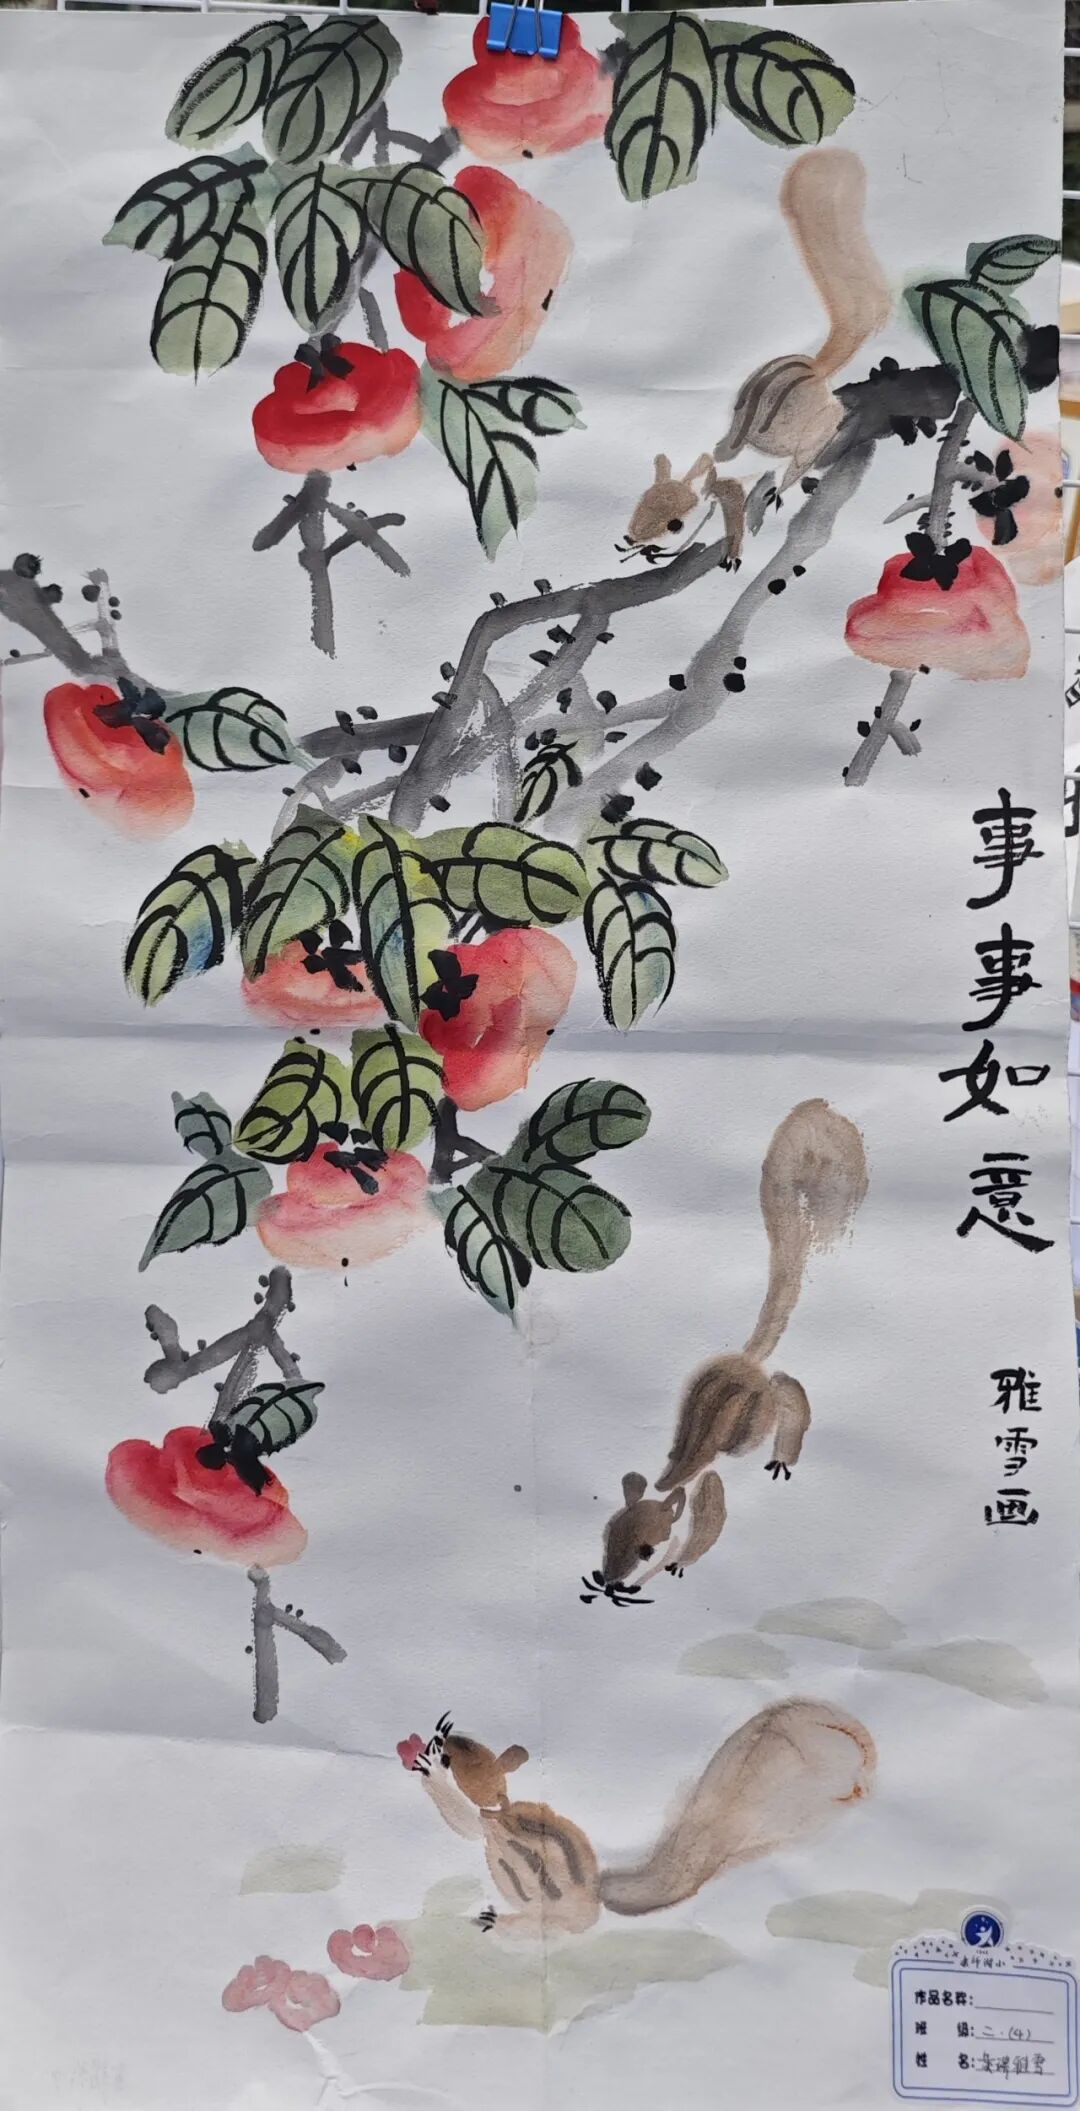 事事如意
雅雪画
作品名称:
班 级: 二.(4)
姓 名: